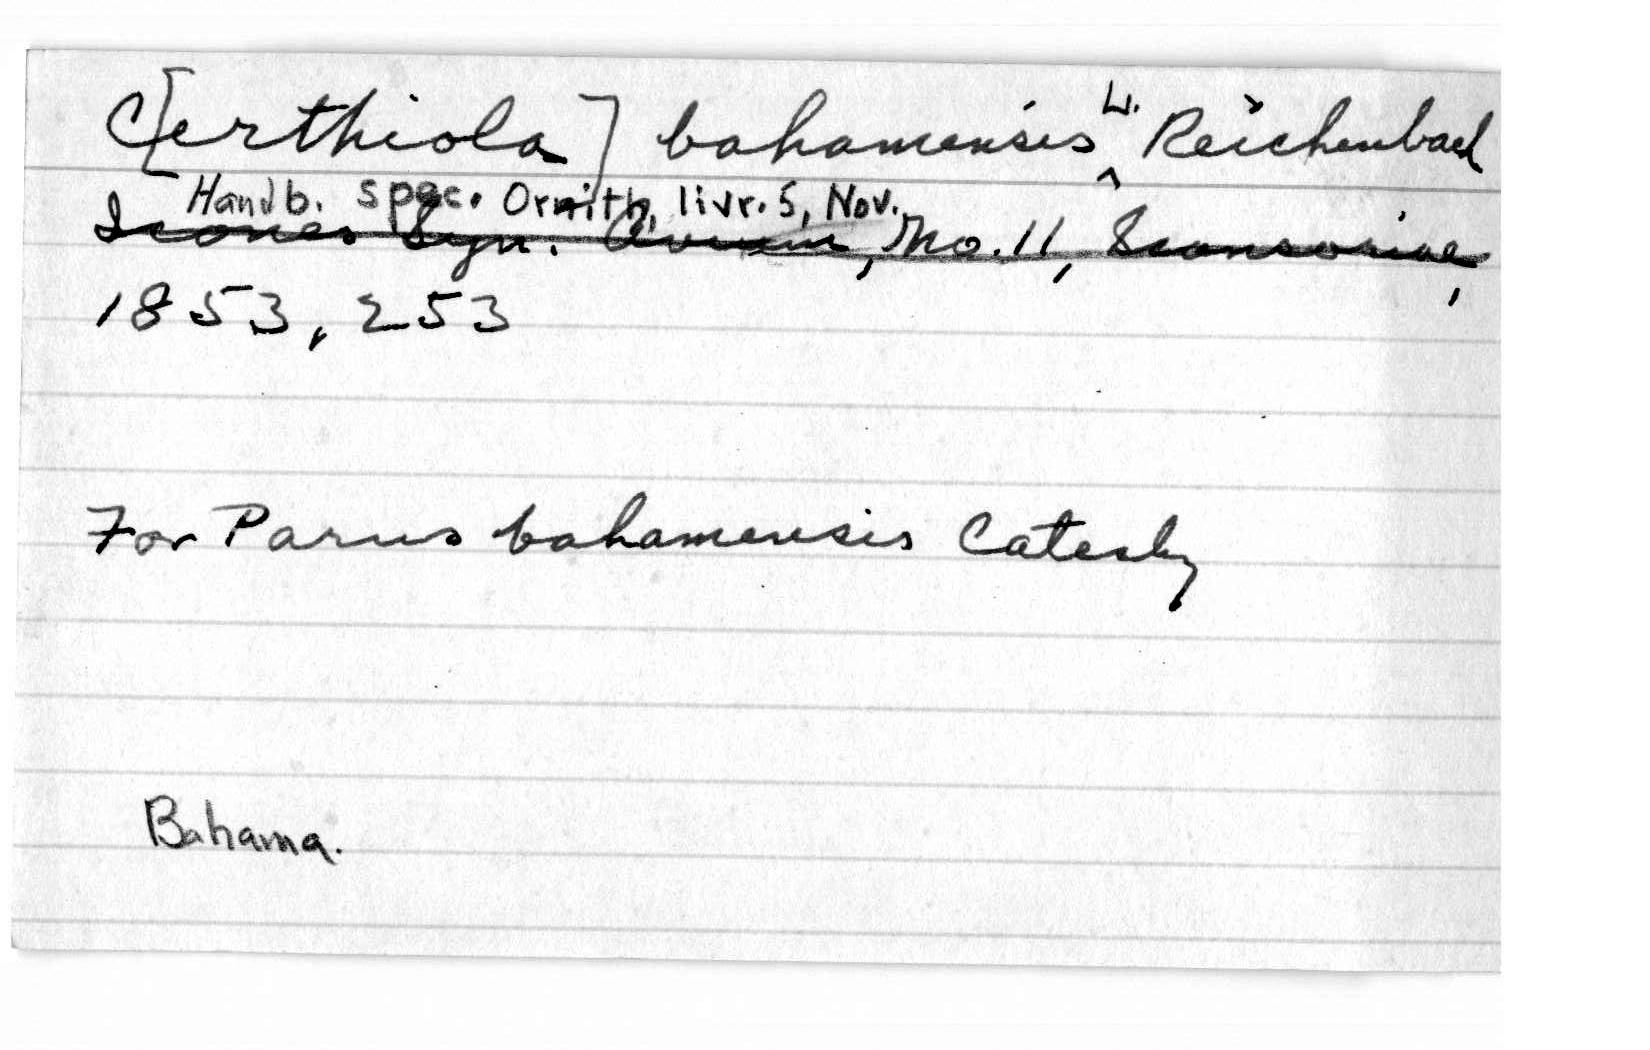 C[erthiola] bahamensis L. Reichenbach
Handb. Spec. Ornith. livr. 5, Nov.
Icones Syn. Avium, No. 11, Scansoriae,
1853, 253
For Parus bahamensis Catesby
Bahama.